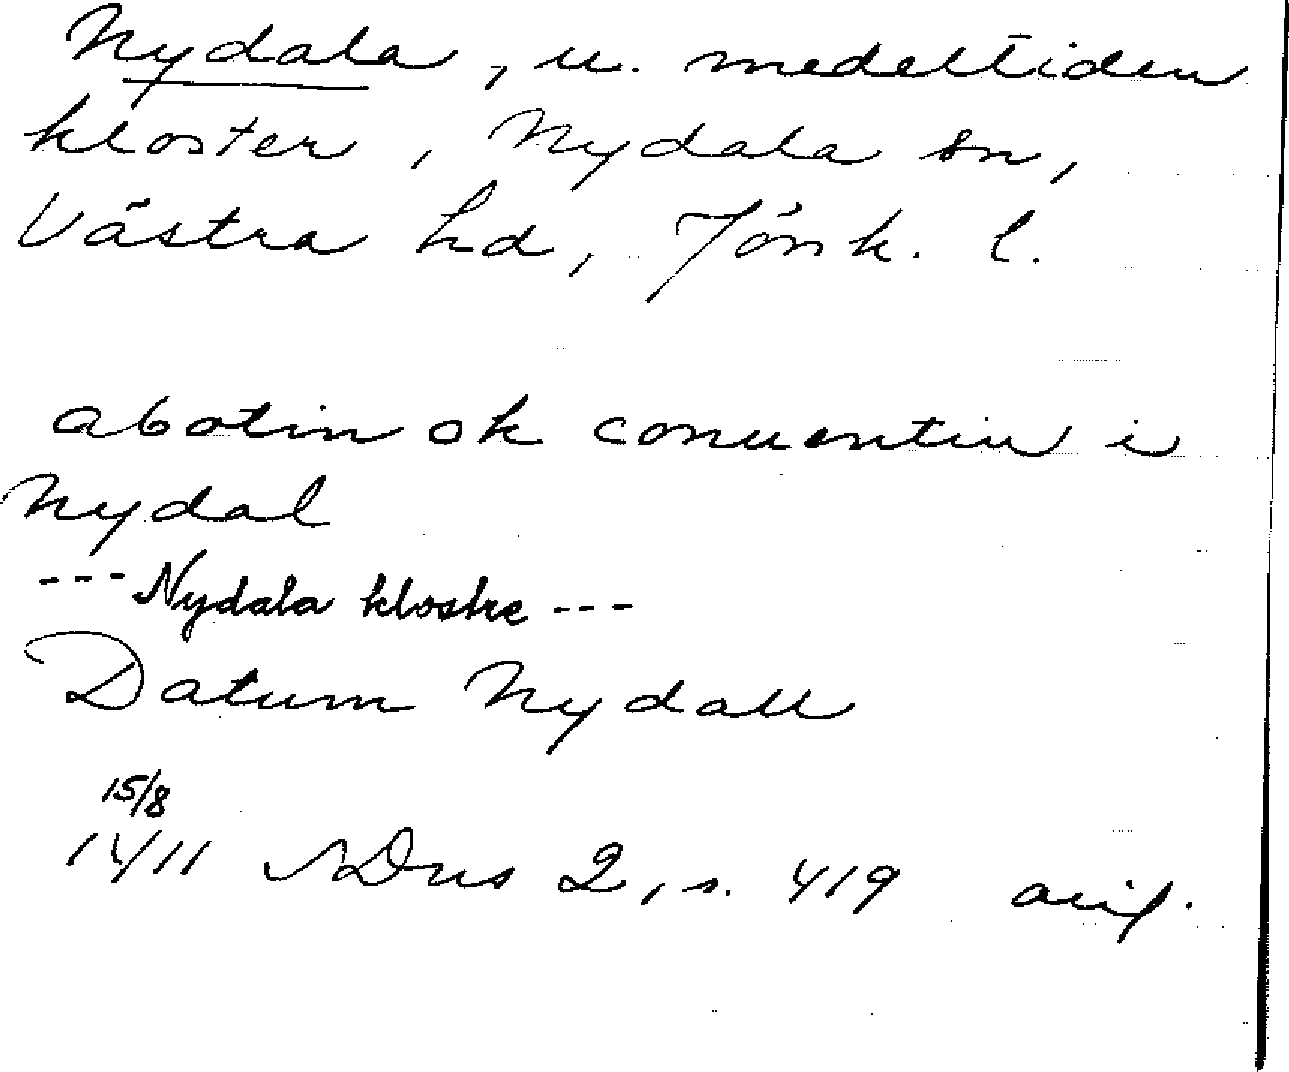 Nydala, u. medeltiden
kloster, Nydala sn,
Västra hd, Jönk. l.
abotin ok conuentin i
Nydal
--- Nydala klostre ---
Datum Nydall
15/8
14/11 SDns 2, s. 419 avs.